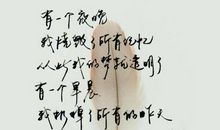 有一个夜晚
我烧毁了所有记忆
从此我的梦就透明了
有一个早晨
我扔掉了所有的昨天